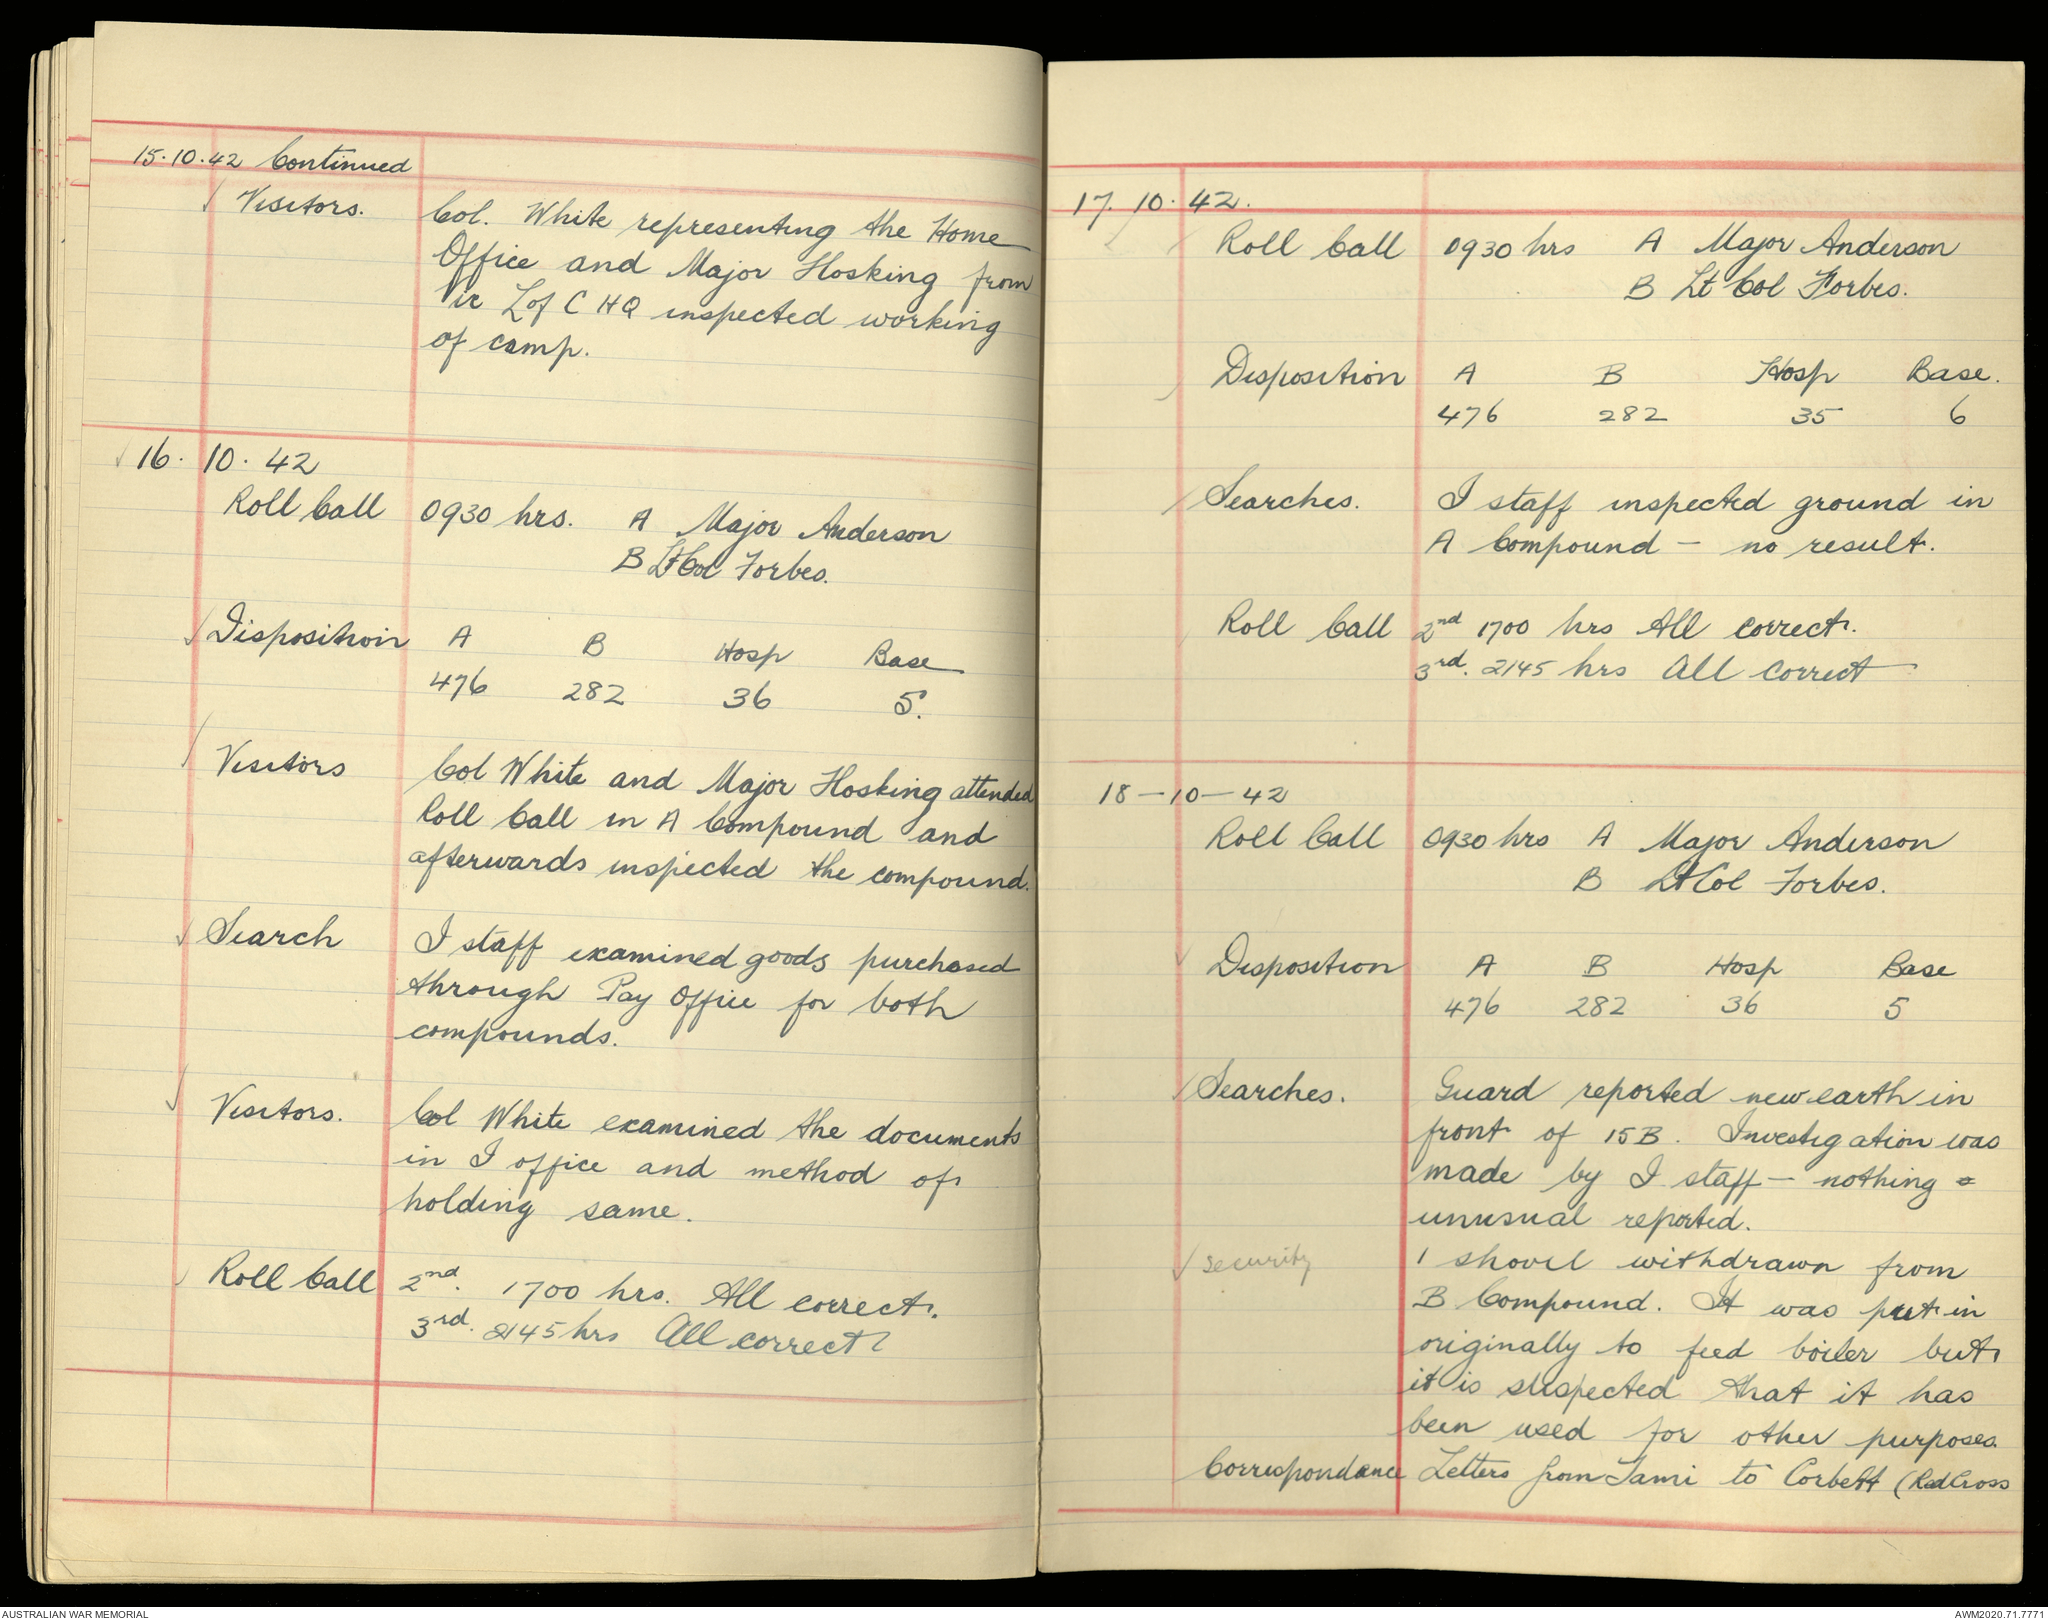 15.10.42 Continued
Visitors. Col. White representing the Home
Office and Major Hosking from
L of C HQ inspected working
of camp.
16. 10. 42
Roll Call 0930 hrs. A Major Anderson
B Lt Col Forbes.
Disposition A B Hosp Base
476 282 36 5.
Visitors Col White and Major Hosking attended
Roll Call in A Compound and
afterwards inspected the compound.
Search I staff examined goods purchased
through Pay Office for both
compounds.
Visitors. Col White examined the documents
in I office and method of
holding same.
Roll Call 2nd. 1700 hrs. All correct.
3rd. 2145 hrs All correct
17. 10. 42.
Roll Call 0930 hrs A Major Anderson
B Lt Col Forbes.
Disposition A B Hosp Base.
476 282 35 6
Searches. I staff inspected ground in
A Compound - no result.
Roll Call 2nd 1700 hrs All correct.
3rd. 2145 hrs All correct
18-10-42
Roll Call 0930 hrs A Major Anderson
B Lt Col Forbes.
Disposition A B Hosp Base
476 282 36 5
Searches. Guard reported new earth in
front of 15B. Investigation was
made by I staff - nothing
unusual reported.
security 1 shovel withdrawn from
B Compound. It was put in
originally to feed boiler but
it is suspected that it has
been used for other purposes.
Correspondence Letters from Tami to Corbett (Red Cross
AUSTRALIAN WAR MEMORIAL
AWM2020.71.7771